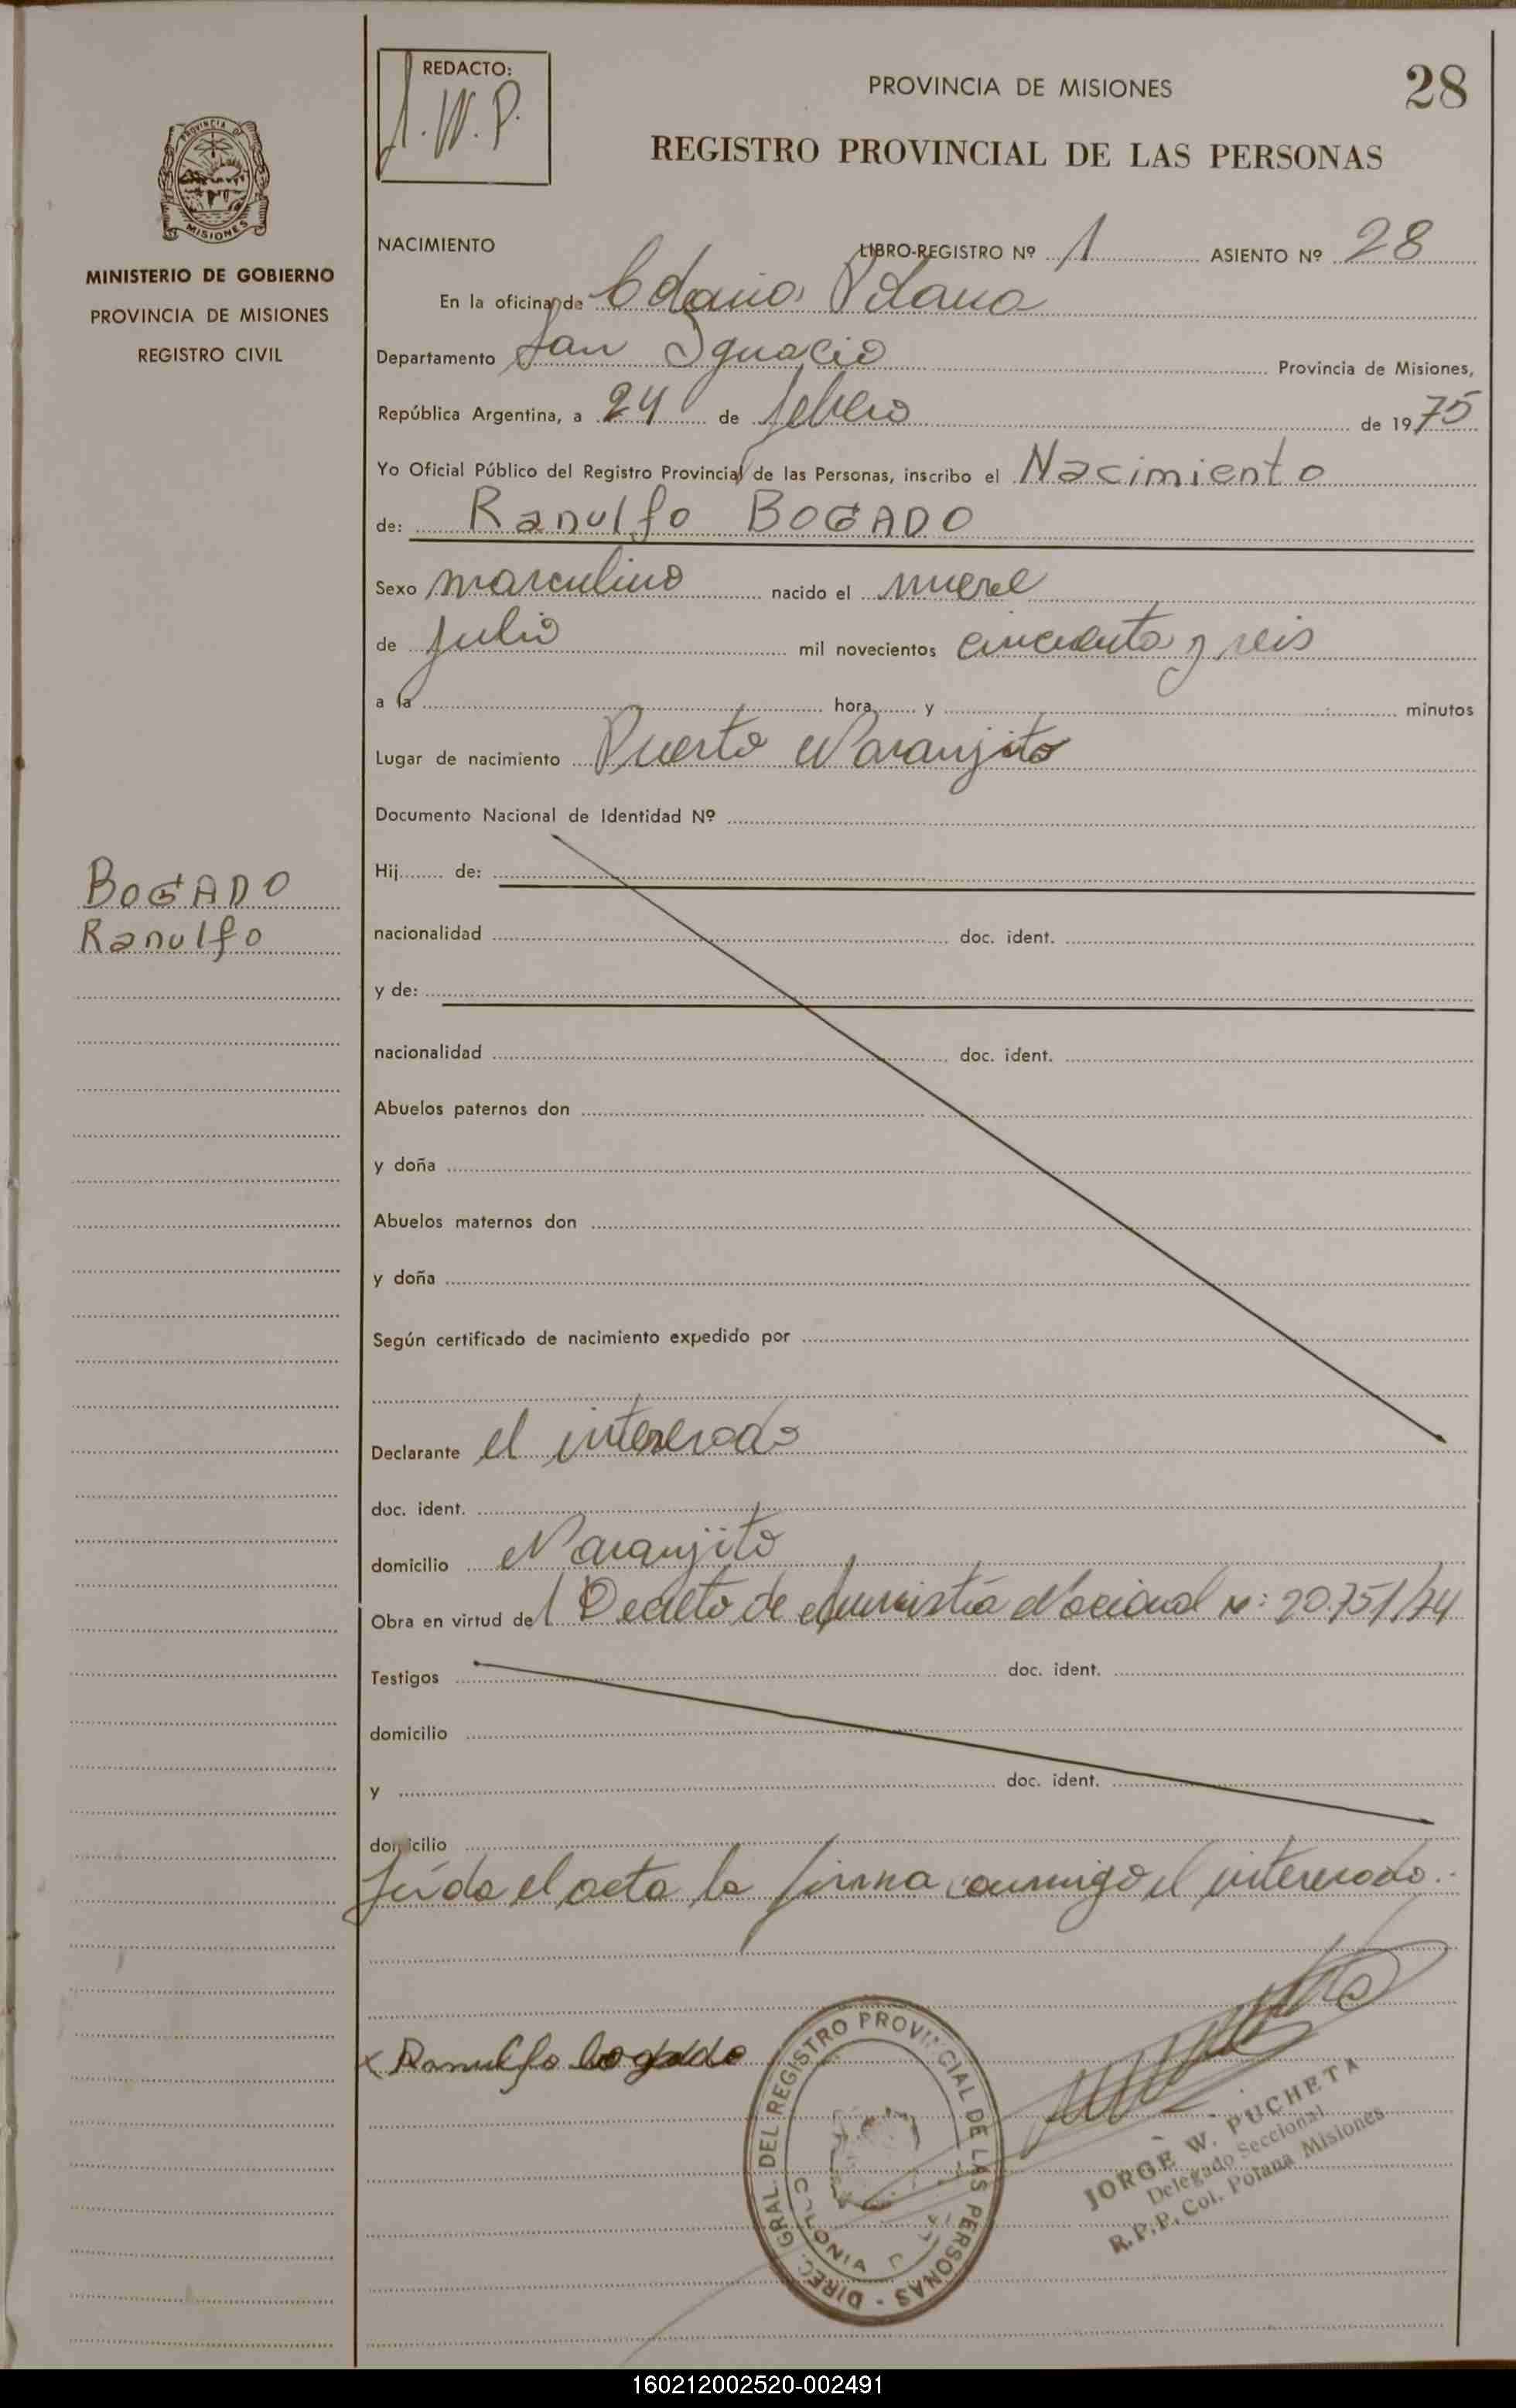 REDACTO:
J.W.P.
PROVINCIA DE MISIONES
28
REGISTRO PROVINCIAL DE LAS PERSONAS
PROVINCIA DE
MISIONES
MINISTERIO DE GOBIERNO
PROVINCIA DE MISIONES
REGISTRO CIVIL
NACIMIENTO
LIBRO-REGISTRO Nº 1 ASIENTO Nº 28
En la oficina de Colonia Polana
Departamento San Ignacio Provincia de Misiones,
República Argentina, a 24 de febrero de 1975
Yo Oficial Público del Registro Provincial de las Personas, inscribo el Nacimiento
de: Ranulfo BOGADO
Sexo masculino nacido el nueve
de julio mil novecientos cincuenta y seis
a la hora y minutos
Lugar de nacimiento Puerto Naranjito
Documento Nacional de Identidad Nº
Hij de:
BOGADO
Ranulfo
nacionalidad doc. ident.
y de:
nacionalidad doc. ident.
Abuelos paternos don
y doña
Abuelos maternos don
y doña
Según certificado de nacimiento expedido por
Declarante el interesado
doc. ident.
domicilio Naranjito
Obra en virtud del Decreto de Amnistía Nacional Nº: 20.751/74
Testigos doc. ident.
domicilio
y doc. ident.
domicilio
Leída el acta la firma conmigo el interesado.-
x Ranulfo bogado
DIREC. GRAL. DEL REGISTRO PROVINCIAL DE LAS PERSONAS -
COLONIA
JORGE W. PUCHETA
Delegado Seccional
R.P.P. Col. Polana Misiones
160212002520-002491